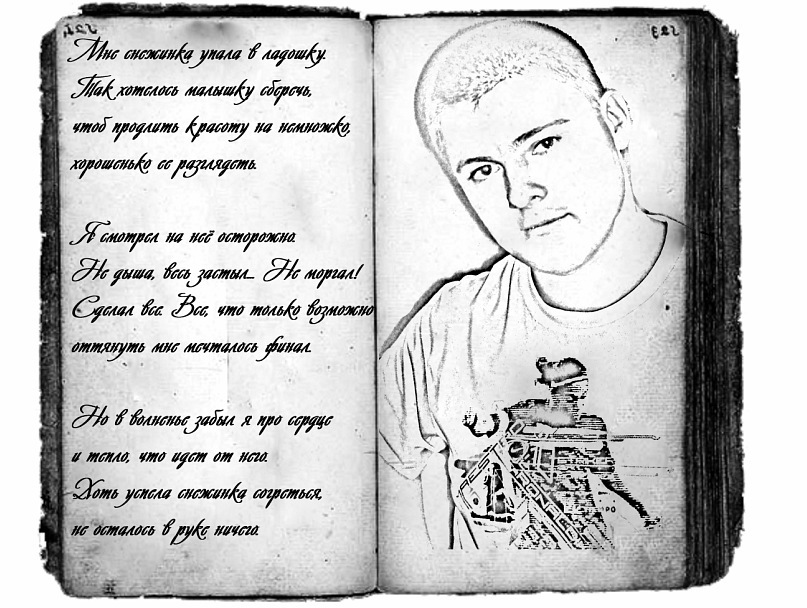 Мне снежинка упала в ладошку.
Так хотелось малышку сберечь,
чтоб продлить красоту на немножко,
хорошенько ее разглядеть.
Я смотрел на неё осторожно.
Не дыша, весь застыл... Не моргал!
Сделал все. Все, что только возможно
оттянуть мне мечталось финал.
Но в волненье забыл я про сердце
и тепло, что идет от него.
Хоть успела снежинка согреться,
не осталось в руке ничего.